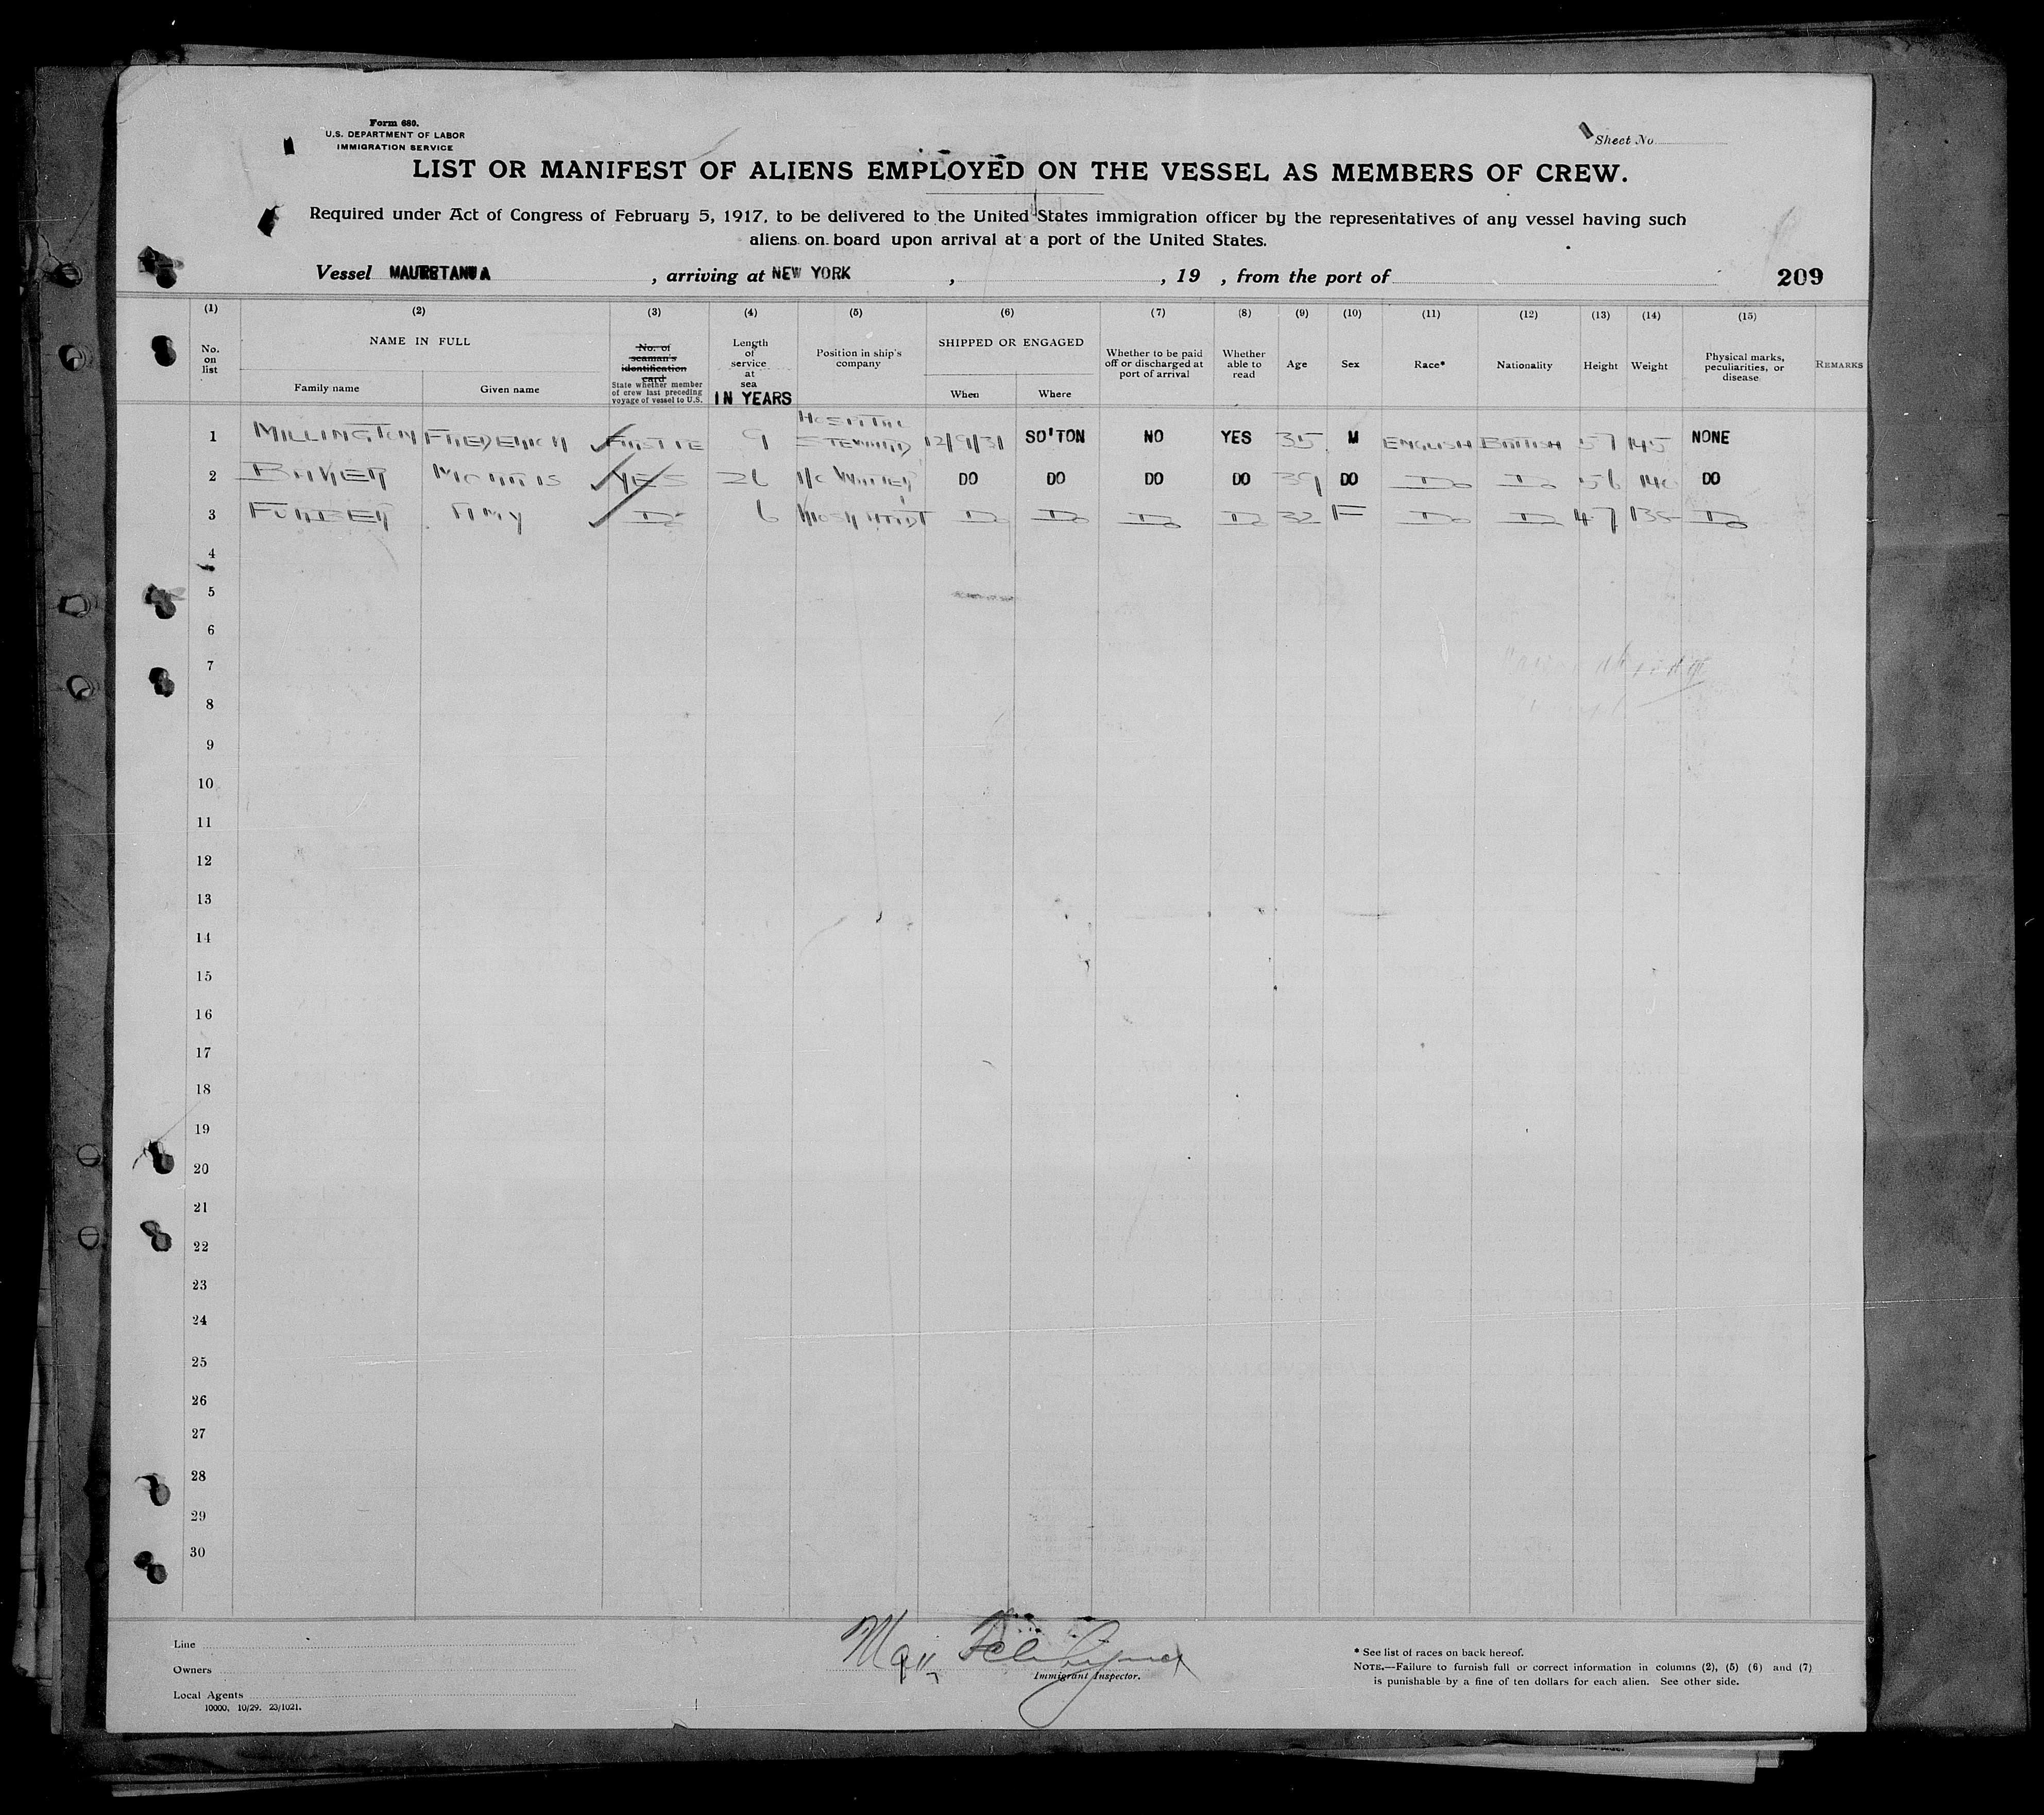 Form 680.
U.S. DEPARTMENT OF LABOR
IMMIGRATION SERVICE
Sheet No.
LIST OR MANIFEST OF ALIENS EMPLOYED ON THE VESSEL AS MEMBERS OF CREW.
Required under Act of Congress of February 5, 1917, to be delivered to the United States immigration officer by the representatives of any vessel having such
aliens on board upon arrival at a port of the United States.
Vessel MAURETANIA , arriving at NEW YORK , , 19 , from the port of 209
(1) (2) (3) (4) (5) (6) (7) (8) (9) (10) (11) (12) (13) (14) (15)
No. on list
NAME IN FULL
Family name Given name
No. of seaman's identification card
State whether member of crew last preceding voyage of vessel to U.S.
Length of service at sea IN YEARS
Position in ship's company
SHIPPED OR ENGAGED
When Where
Whether to be paid off or discharged at port of arrival
Whether able to read
Age Sex Race* Nationality Height Weight
Physical marks, peculiarities, or disease
REMARKS
1 MILLINGTON FREDERICK 9 HOSPITAL STEWARD 12/9/31 SO'TON NO YES 35 M ENGLISH BRITISH 57 145 NONE
2 BAKER MORRIS YES 26 DO DO DO DO 39 DO DO DO 56 140 DO
3 FURBER AMY DO 6 DO DO DO DO 32 F DO DO 4.7 135 DO
4
5
6
7
8
9
10
11
12
13
14
15
16
17
18
19
20
21
22
23
24
25
26
27
28
29
30
Line
Owners
Local Agents
10000, 10/29. 23/1021.
Immigrant Inspector.
* See list of races on back hereof.
NOTE.—Failure to furnish full or correct information in columns (2), (5) (6) and (7)
is punishable by a fine of ten dollars for each alien. See other side.